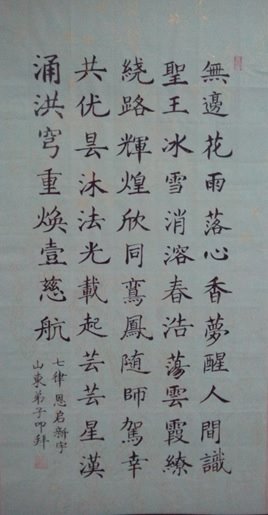 無邊花雨落心香夢醒人間識
聖王冰雪消溶春浩蕩雲霞繚
繞路輝煌欣同鸞鳳隨師駕幸
共优昙沐法光載起芸芸星漢
涌洪穹重焕壹慈航
七律 恩启新宇
山東弟子叩拜